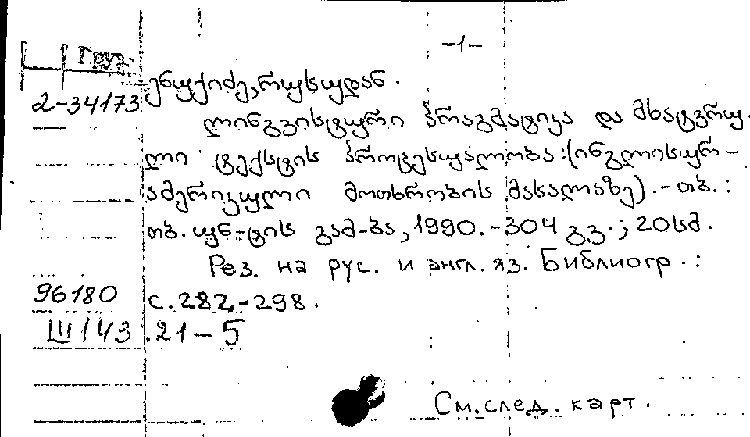 -1-
Груз.
2-34173 ენუქიძე, რუსუდან.
ლინგვისტური პრაგმატიკა და მხატვრუ-
ლი ტექსტის პროცესუალობა: (ინგლისურ-
ამერიკული მოთხრობის მასალაზე). - თბ.:
თბ. უნ-ტის გამ-ბა, 1990. - 304 გვ.; 20სმ.
Рез. на рус. и англ. яз. Библиогр.:
96180 с. 282-298.
III/43 .21-5
См. след. карт.